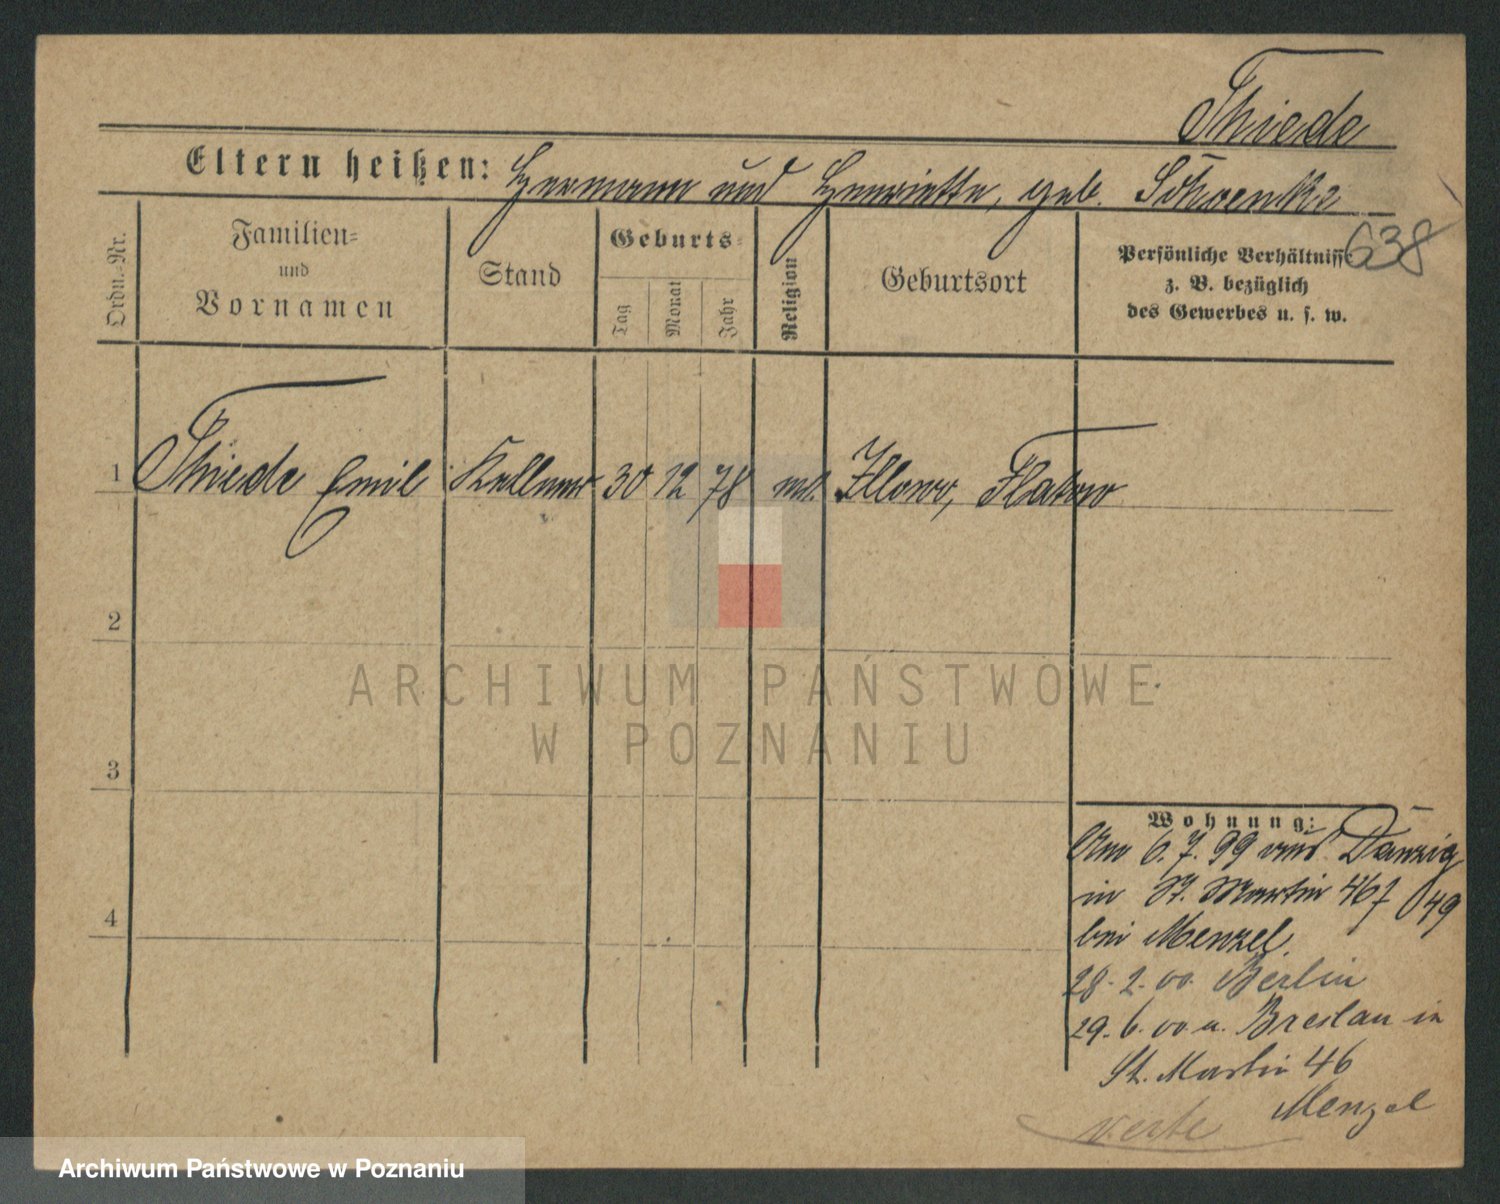 Thiede
Eltern heißen: Hermann und Henriette, geb. Schoenke
638
Ordn.-Nr.
Familien-
und
Vornamen
Stand
Geburts-
Tag
Monat
Jahr
Religion
Geburtsort
Persönliche Verhältnisse
z. B. bezüglich
des Gewerbes u. s. w.
1 Thiede Emil Kellner 30 12 78 ev. Illowo, Flatow
2
ARCHIWUM PAŃSTWOWE
W POZNANIU
3
Wohnung:
Am 6.7.99 aus Danzig
in St. Martin 46
49
bei Menzel.
4
28.2.00. Berlin
29.6.00 a. Breslau in
St. Martin 46
Menzel
verte
Archiwum Państwowe w Poznaniu